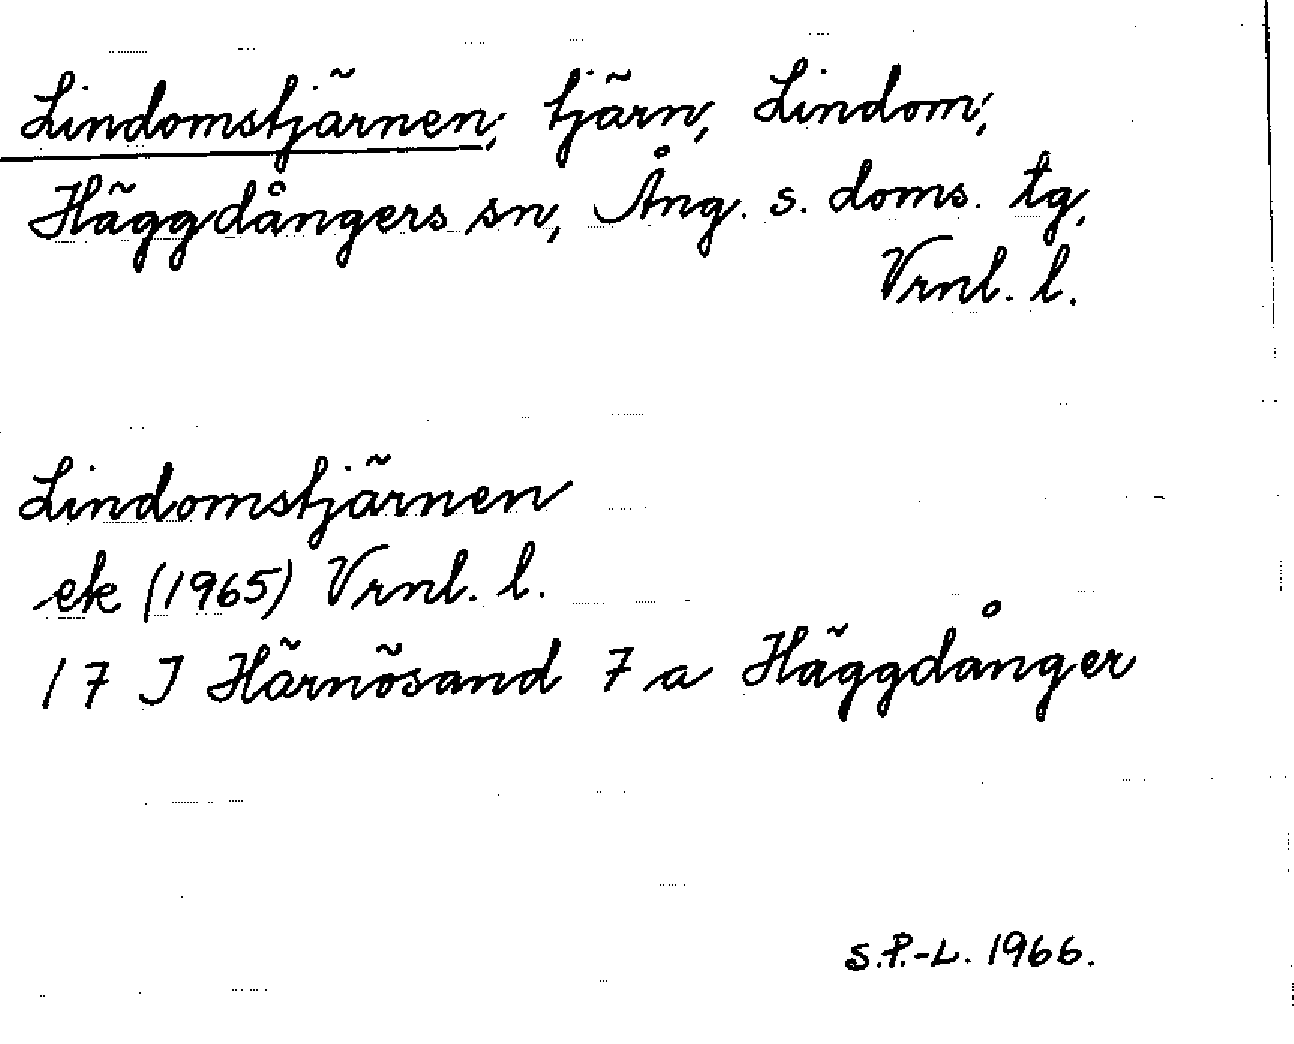 Lindomstjärnen, tjärn, Lindom,
Häggdångers sn, Ång. s. doms. tg,
Vrnl. l.
Lindomstjärnen
ek (1965) Vrnl. l.
17 I Härnösand 7 a Häggdånger
S.P.-L. 1966.